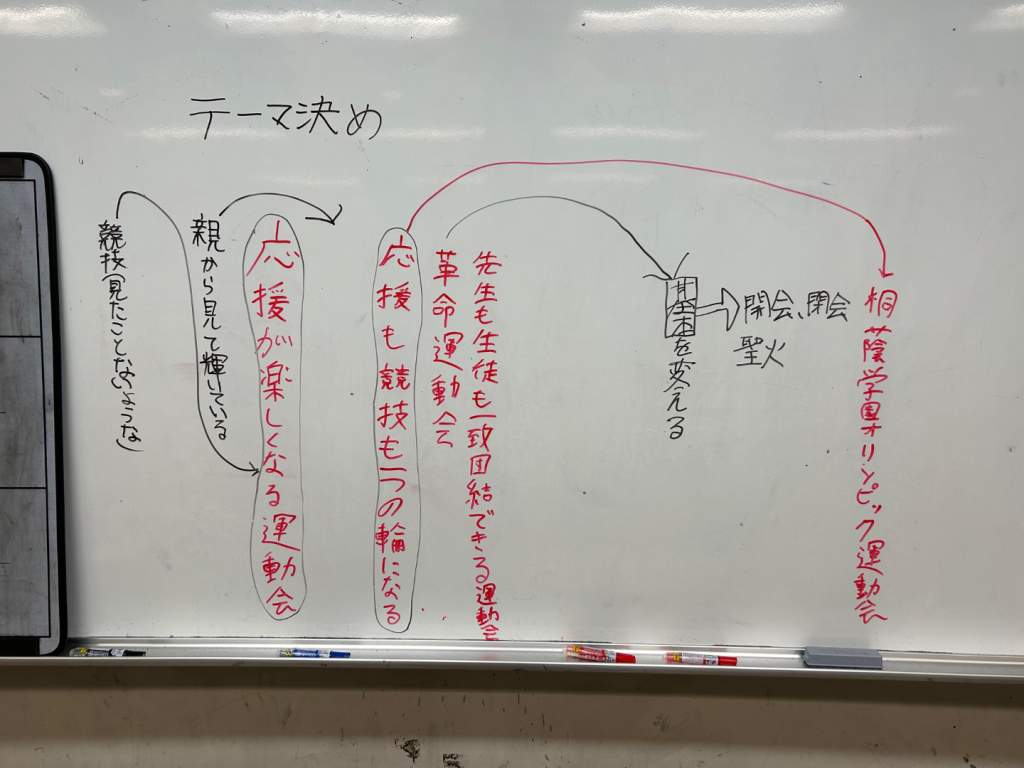 テーマ決め
桐蔭学園オリンピック運動会
閉会、閉会
聖火
基本を変える
先生も生徒も一致団結できる運動会
革命運動会
応援も競技も一つの輪になる
応援が楽しくなる運動会
親から見て輝いている
競技(見たことないような)